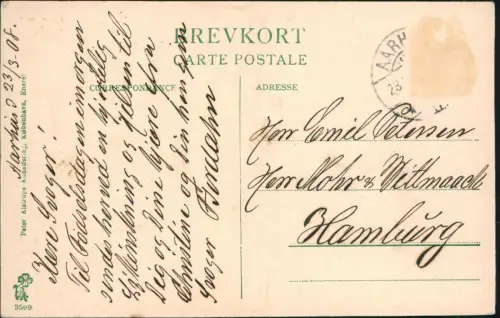 BREVKORT
CARTE POSTALE
CORRESPONDANCE
ADRESSE
AARH
23
Aarhus d 23/3-08.
Kære Svoger!
Til Fødselsdagen imorgen
sendes herved en hjertelig
Lykønskning og Hilsen til
Dig og Dine kjære fra
Christine og Din hengivne
Svoger
Herr Emil Petersen
Herr Mohr & Wittmaack
Hamburg
Peter Alstrups Kunstforlag, København, Eneret
3569